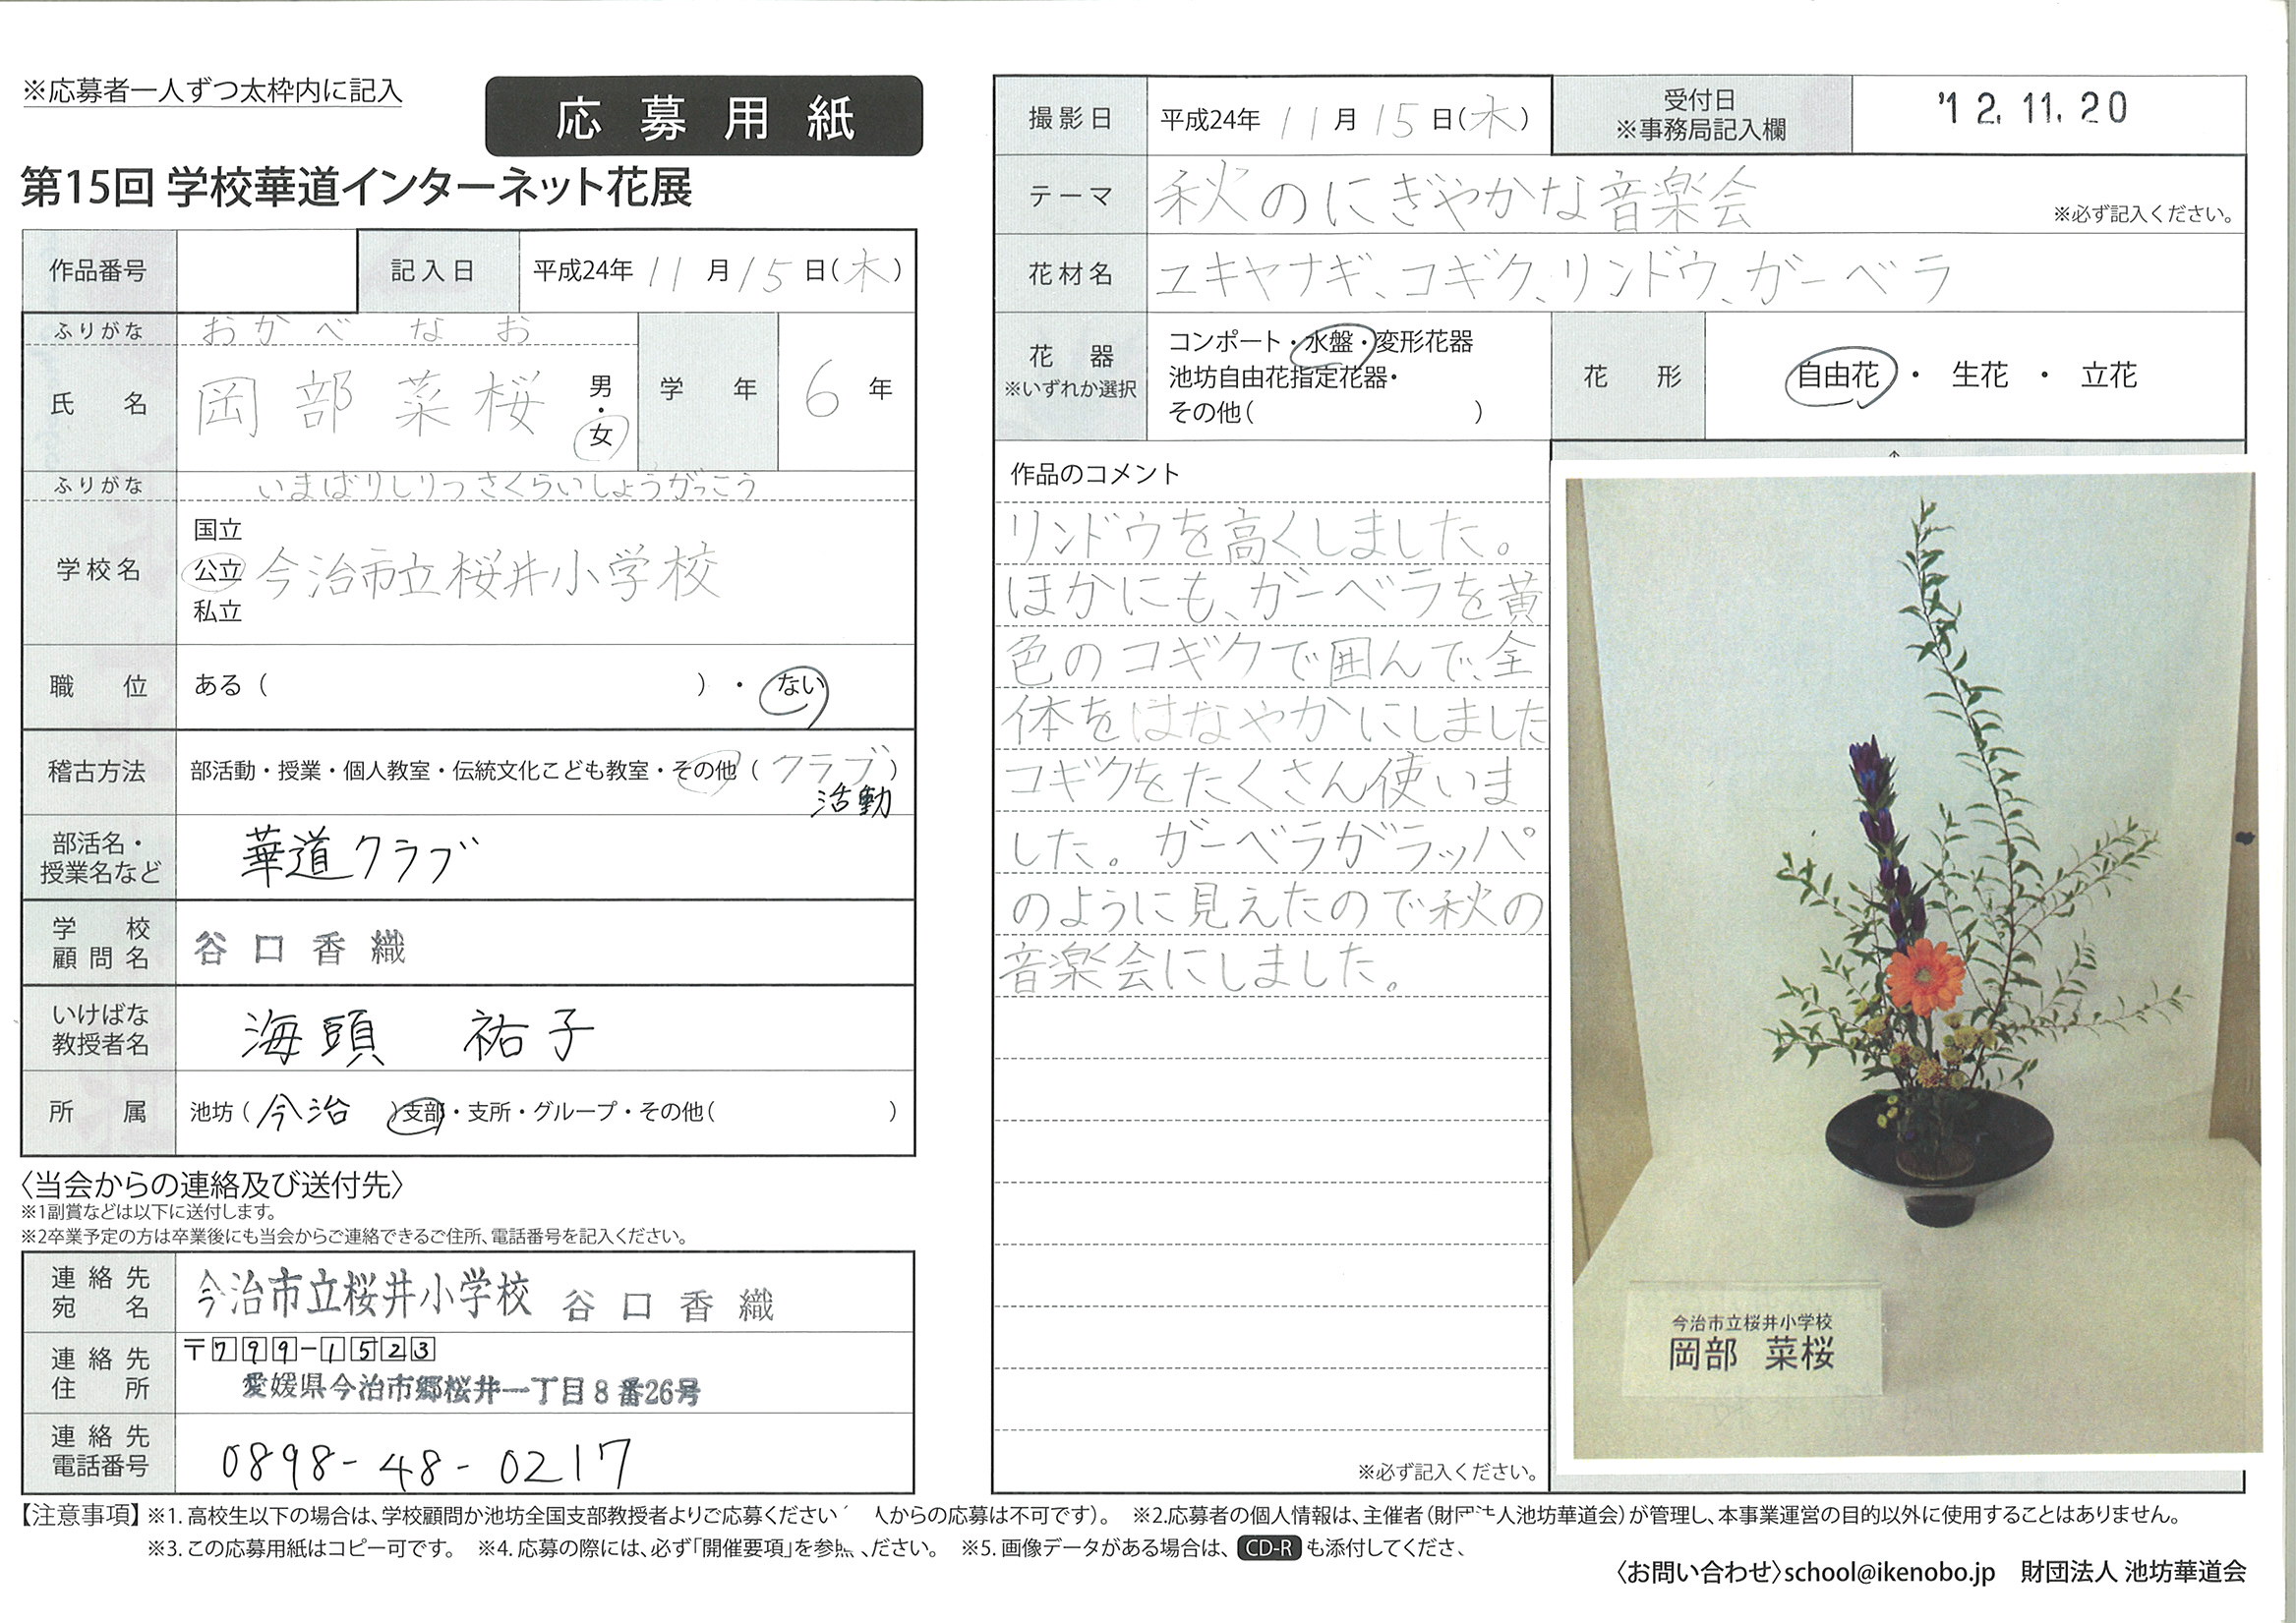 ※応募者一人ずつ太枠内に記入
応募用紙
第15回 学校華道インターネット花展
作品番号
記入日 平成24年 11月15日(木)
ふりがな おかべ なお
氏名 岡部菜桜 男・女
学年 6年
ふりがな いまばりしりつさくらいしょうがっこう
学校名 国立 公立 私立 今治市立桜井小学校
職位 ある( )・ない
稽古方法 部活動・授業・個人教室・伝統文化こども教室・その他(クラブ活動)
部活名・授業名など 華道クラブ
学校顧問名 谷口香織
いけばな教授者名 海頭 祐子
所属 池坊(今治)支部・支所・グループ・その他( )
〈当会からの連絡及び送付先〉
※1副賞などは以下に送付します。
※2卒業予定の方は卒業後にも当会からご連絡できるご住所、電話番号を記入ください。
連絡先宛名 今治市立桜井小学校 谷口香織
連絡先住所 〒799-1523
愛媛県今治市郷桜井一丁目8番26号
連絡先電話番号 0898-48-0217
撮影日 平成24年 11月15日(木)
受付日 ※事務局記入欄 '12.11.20
テーマ 秋のにぎやかな音楽会 ※必ず記入ください。
花材名 ユキヤナギ、コギク、リンドウ、ガーベラ
花器 ※いずれか選択
コンポート・水盤・変形花器
池坊自由花指定花器・
その他( )
花形 自由花・生花・立花
作品のコメント
リンドウを高くしました。
ほかにも、ガーベラを黄
色のコギクで囲んで、全
体をはなやかにしました
コギクをたくさん使いま
した。ガーベラがラッパ
のように見えたので秋の
音楽会にしました。
※必ず記入ください。
今治市立桜井小学校
岡部 菜桜
【注意事項】※1.高校生以下の場合は、学校顧問か池坊全国支部教授者よりご応募ください 人からの応募は不可です)。 ※2.応募者の個人情報は、主催者(財団法人池坊華道会)が管理し、本事業運営の目的以外に使用することはありません。
※3.この応募用紙はコピー可です。 ※4.応募の際には、必ず「開催要項」を参 ださい。 ※5.画像データがある場合は、CD-Rも添付してくださ
〈お問い合わせ〉school@ikenobo.jp 財団法人 池坊華道会